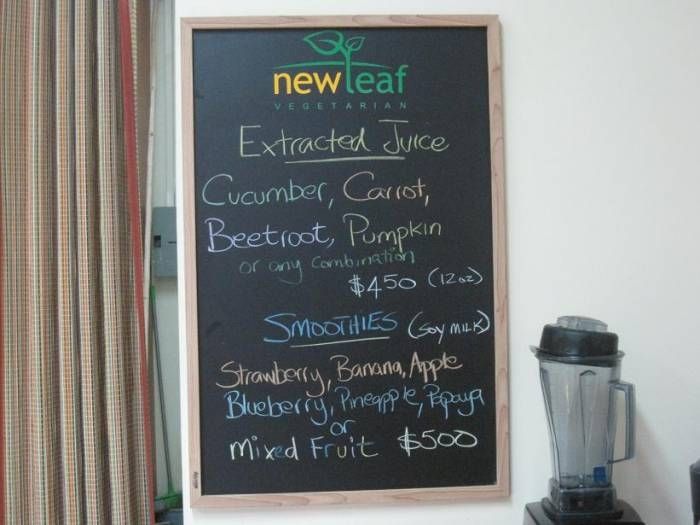 newleaf
VEGETARIAN
Extracted Juice
Cucumber, Carrot,
Beetroot, Pumpkin
or any Combination
$450 (12oz)
SMOOTHIES (Soy MILK)
Strawberry, Banana, Apple
Blueberry, Pineapple, Papaya
or
Mixed Fruit $500